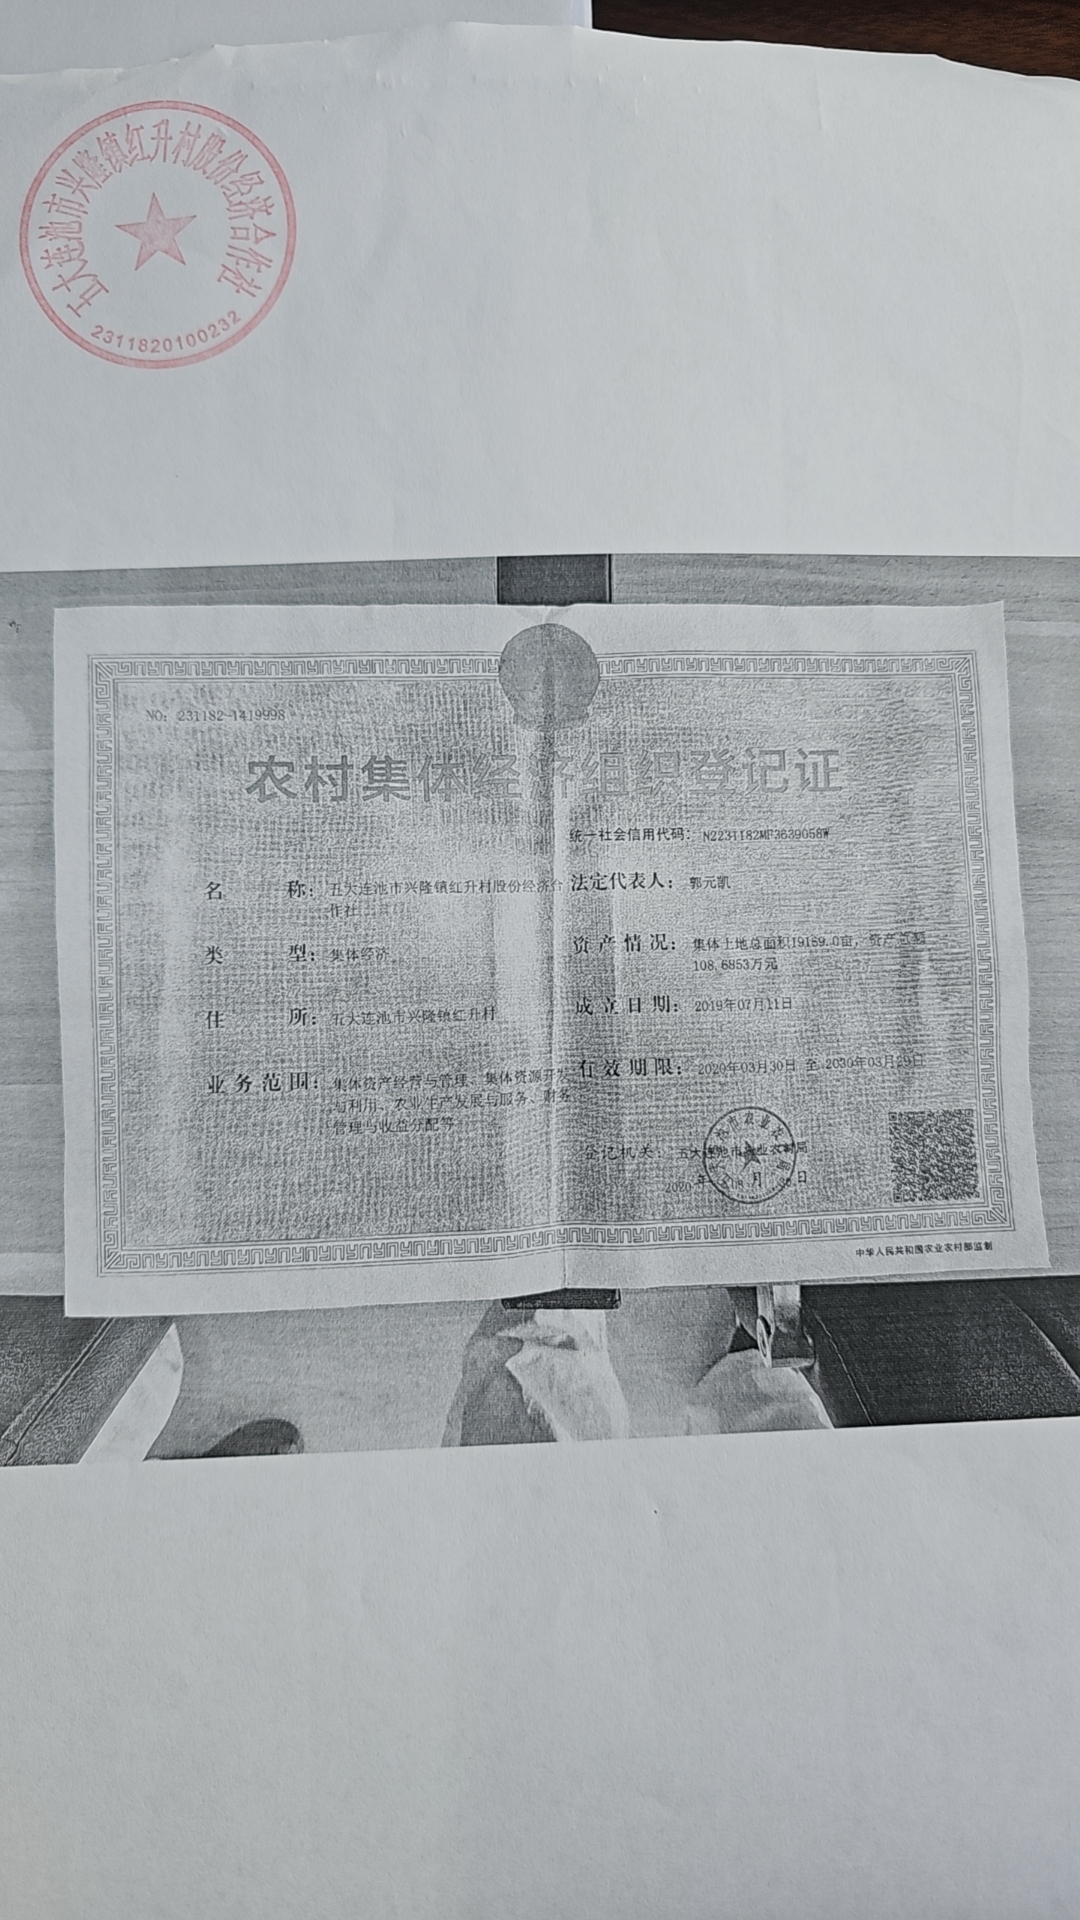 五大连池市兴隆镇红升村股份经济合作社
2311820100232
NO: 231182-1419998
农村集体经济组织登记证
统一社会信用代码： N2231182MF3639058W
名 称： 五大连池市兴隆镇红升村股份经济合
作社
法定代表人： 郭元凯
类 型： 集体经济
资产情况： 集体土地总面积19159.0亩，资产总额
108.6853万元
住 所： 五大连池市兴隆镇红升村
成立日期： 2019年07月11日
业务范围： 集体资产经营与管理、集体资源开发
与利用、农业生产发展与服务、财务
管理与收益分配等
有效期限： 2020年03月30日 至 2030年03月29日
登记机关： 五大连池市农业农村局
2020 年 月 日
中华人民共和国农业农村部监制